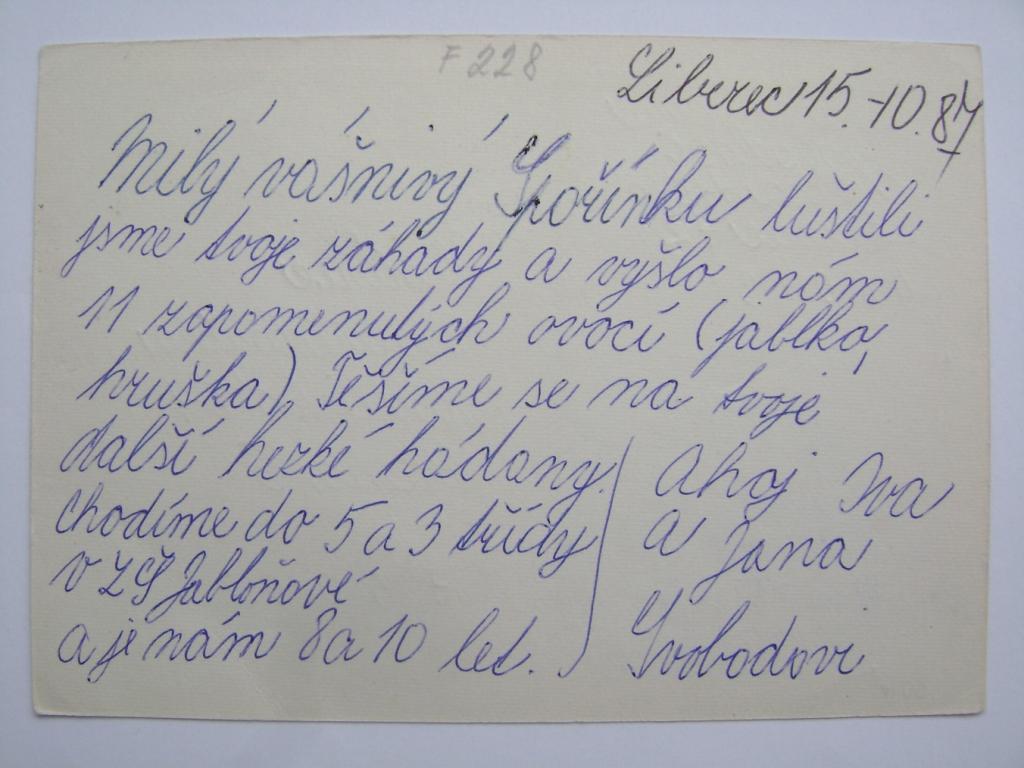 F 228
Liberec 15.-10.87
Milý vášnivý Spořínku luštili
jsme tvoje záhady a vyšlo nám
11 zapomenutých ovocí (jablko,
hruška) Těšíme se na tvoje
další hezké hádany.
chodíme do 5 a 3 třídy
v ZŠ Jabloňové
a je nám 8 a 10 let.
Ahoj Iva
a Jana
Svobodovi